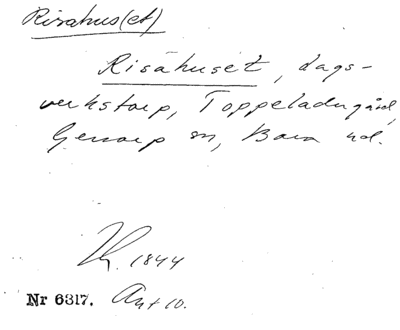 Risahus(et)
Risahuset, dags-
verkstorp, Toppeladugård,
Genarp sn, Bara hd.
1844
Nr 6317. Ant 10.